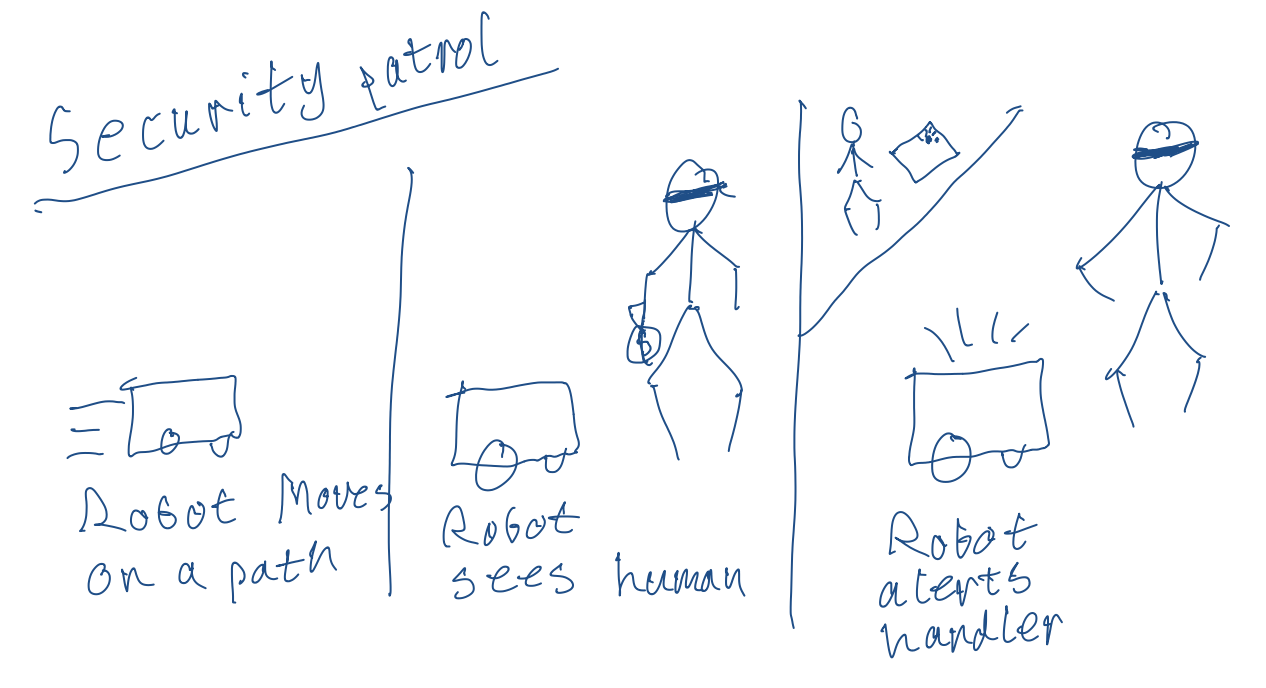 Security patrol
Robot Moves
on a path
Robot
sees human
Robot
alerts
handler